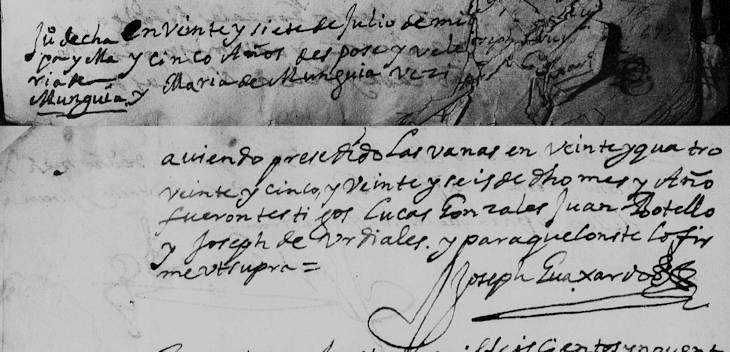 Juº de cha
pa y Ma
ria de
Munguia
en Veinte y siete de Julio de mil
y cinco Años despose y vele
y Maria de Munguia vezi
aviendo presedido Las vanas en Veinte y quatro
veinte y cinco, y Veinte y seis de dho mes y Año
fueron testigos Lucas Gonzales Juan Botello
y Joseph de Urdiales. y para que Conste lo fir
me Ut supra =
Joseph Guaxardo